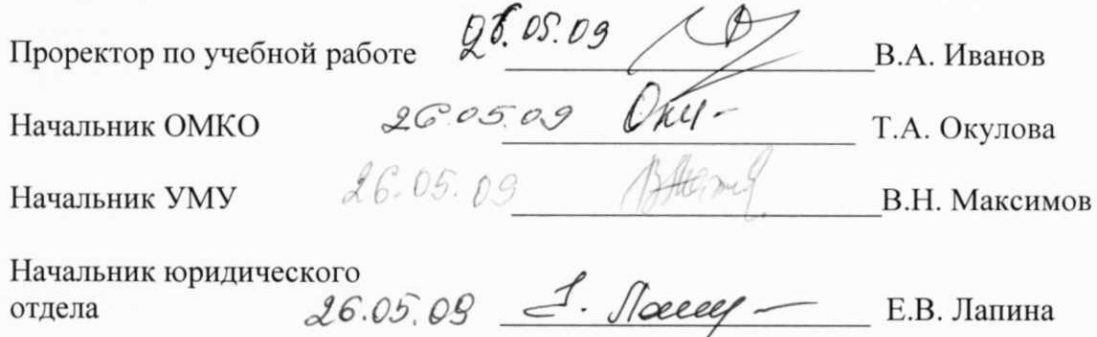 Проректор по учебной работе 26.05.09 В.А. Иванов
Начальник ОМКО 26.05.09 Т.А. Окулова
Начальник УМУ 26.05.09 В.Н. Максимов
Начальник юридического
отдела 26.05.09 Е.В. Лапина